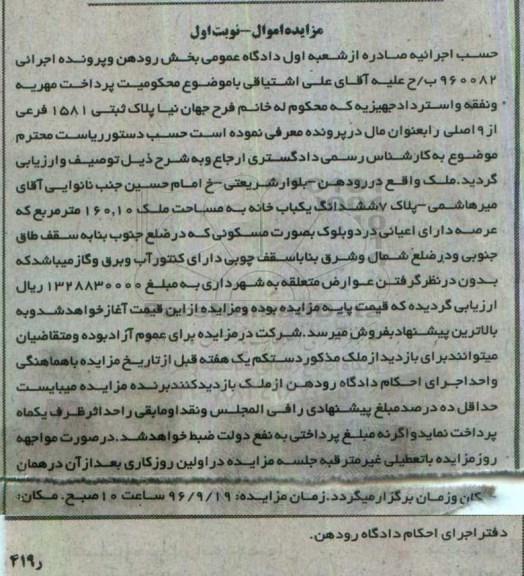 مزایده اموال-نوبت اول
حسب اجرائیه صادره از شعبه اول دادگاه عمومی بخش رودهن و پرونده اجرائی
۹۶۰۰۸۲ ب/ح علیه آقای علی اشتیاقی با موضوع محکومیت پرداخت مهریه
ونفقه و استرداد جهیزیه که محکوم له خانم فرح جهان نیا پلاک ثبتی ۱۵۸۱ فرعی
از ۹ اصلی را بعنوان مال در پرونده معرفی نموده است حسب دستور ریاست محترم
موضوع به کارشناس رسمی دادگستری ارجاع و به شرح ذیل توصیف و ارزیابی
گردید. ملک واقع در رودهن-بلوار شریعتی-خ امام حسین جنب نانوایی آقای
میرهاشمی-پلاک ۷ ششدانگ یکباب خانه به مساحت ملک ۱۶۰,۱۰ مترمربع که
عرصه دارای اعیانی در دو بلوک بصورت مسکونی که در ضلع جنوب بنا به سقف طاق
جنوبی و در ضلع شمال و شرق بنا با سقف چوبی دارای کنتور آب و برق و گاز میباشد که
بدون در نظر گرفتن عوارض متعلقه به شهرداری به مبلغ ۱۳۲۸۸۳۰۰۰۰ ریال
ارزیابی گردیده که قیمت پایه مزایده بوده و مزایده از این قیمت آغاز خواهد شد و به
بالاترین پیشنهاد بفروش میرسد. شرکت در مزایده برای عموم آزاد بوده و متقاضیان
میتوانند برای بازدید از ملک مذکور دستکم یک هفته قبل از تاریخ مزایده با هماهنگی
واحد اجرای احکام دادگاه رودهن از ملک بازدید کنند برنده مزایده میبایست
حداقل ده درصد مبلغ پیشنهادی را فی المجلس و نقدا و مابقی را حداثر ظرف یکماه
پرداخت نماید و اگرنه مبلغ پرداختی به نفع دولت ضبط خواهد شد. در صورت مواجهه
روز مزایده با تعطیلی غیرمترقبه جلسه مزایده در اولین روز کاری بعد از آن در همان
مکان و زمان برگزار میگردد. زمان مزایده: ۹۶/۹/۱۹ ساعت ۱۰ صبح. مکان:
دفتر اجرای احکام دادگاه رودهن.
۴۱۹ر